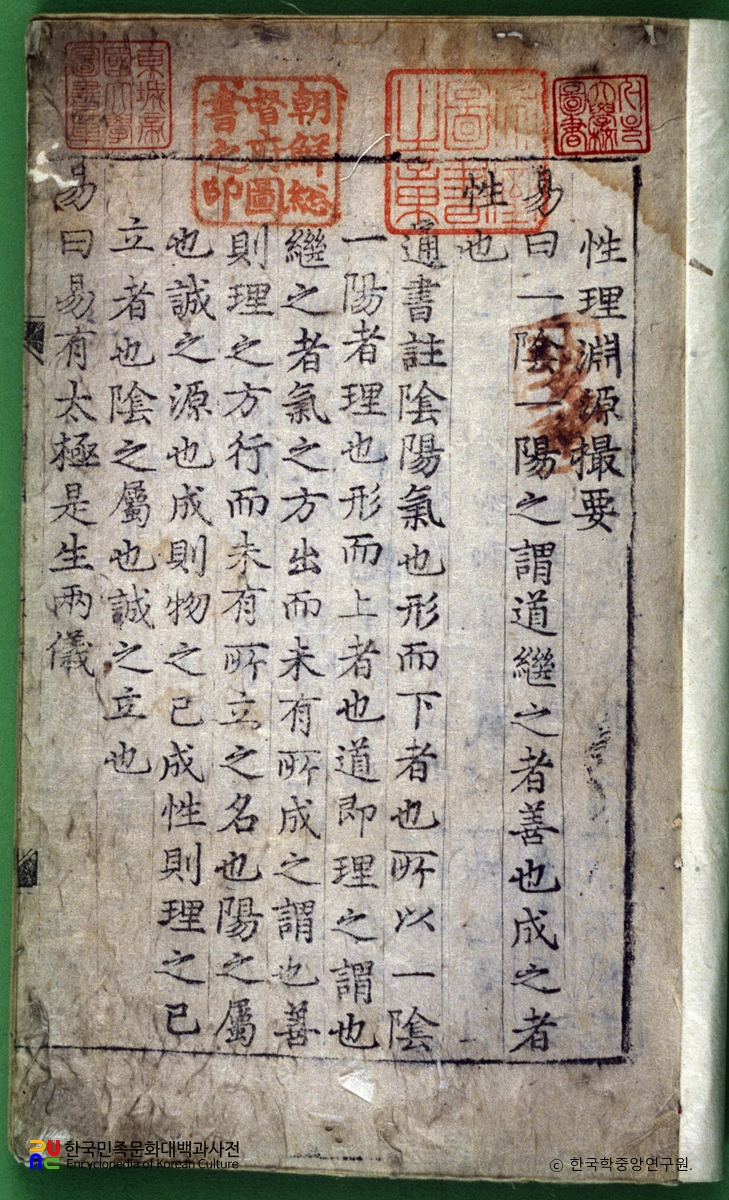 性理淵源撮要
易曰一陰一陽之謂道繼之者善也成之者
性也
通書註陰陽氣也形而下者也所以一陰
一陽者理也形而上者也道即理之謂也
繼之者氣之方出而未有所成之謂也善
則理之方行而未有所立之名也陽之屬
也誠之源也成則物之已成性則理之已
立者也陰之屬也誠之立也
易曰易有太極是生兩儀
朝鮮総
督府圖
書之印
東城帝
國大學
圖書章
圖書
한국민족문화대백과사전
Encyclopedia of Korean Culture
© 한국학중앙연구원.